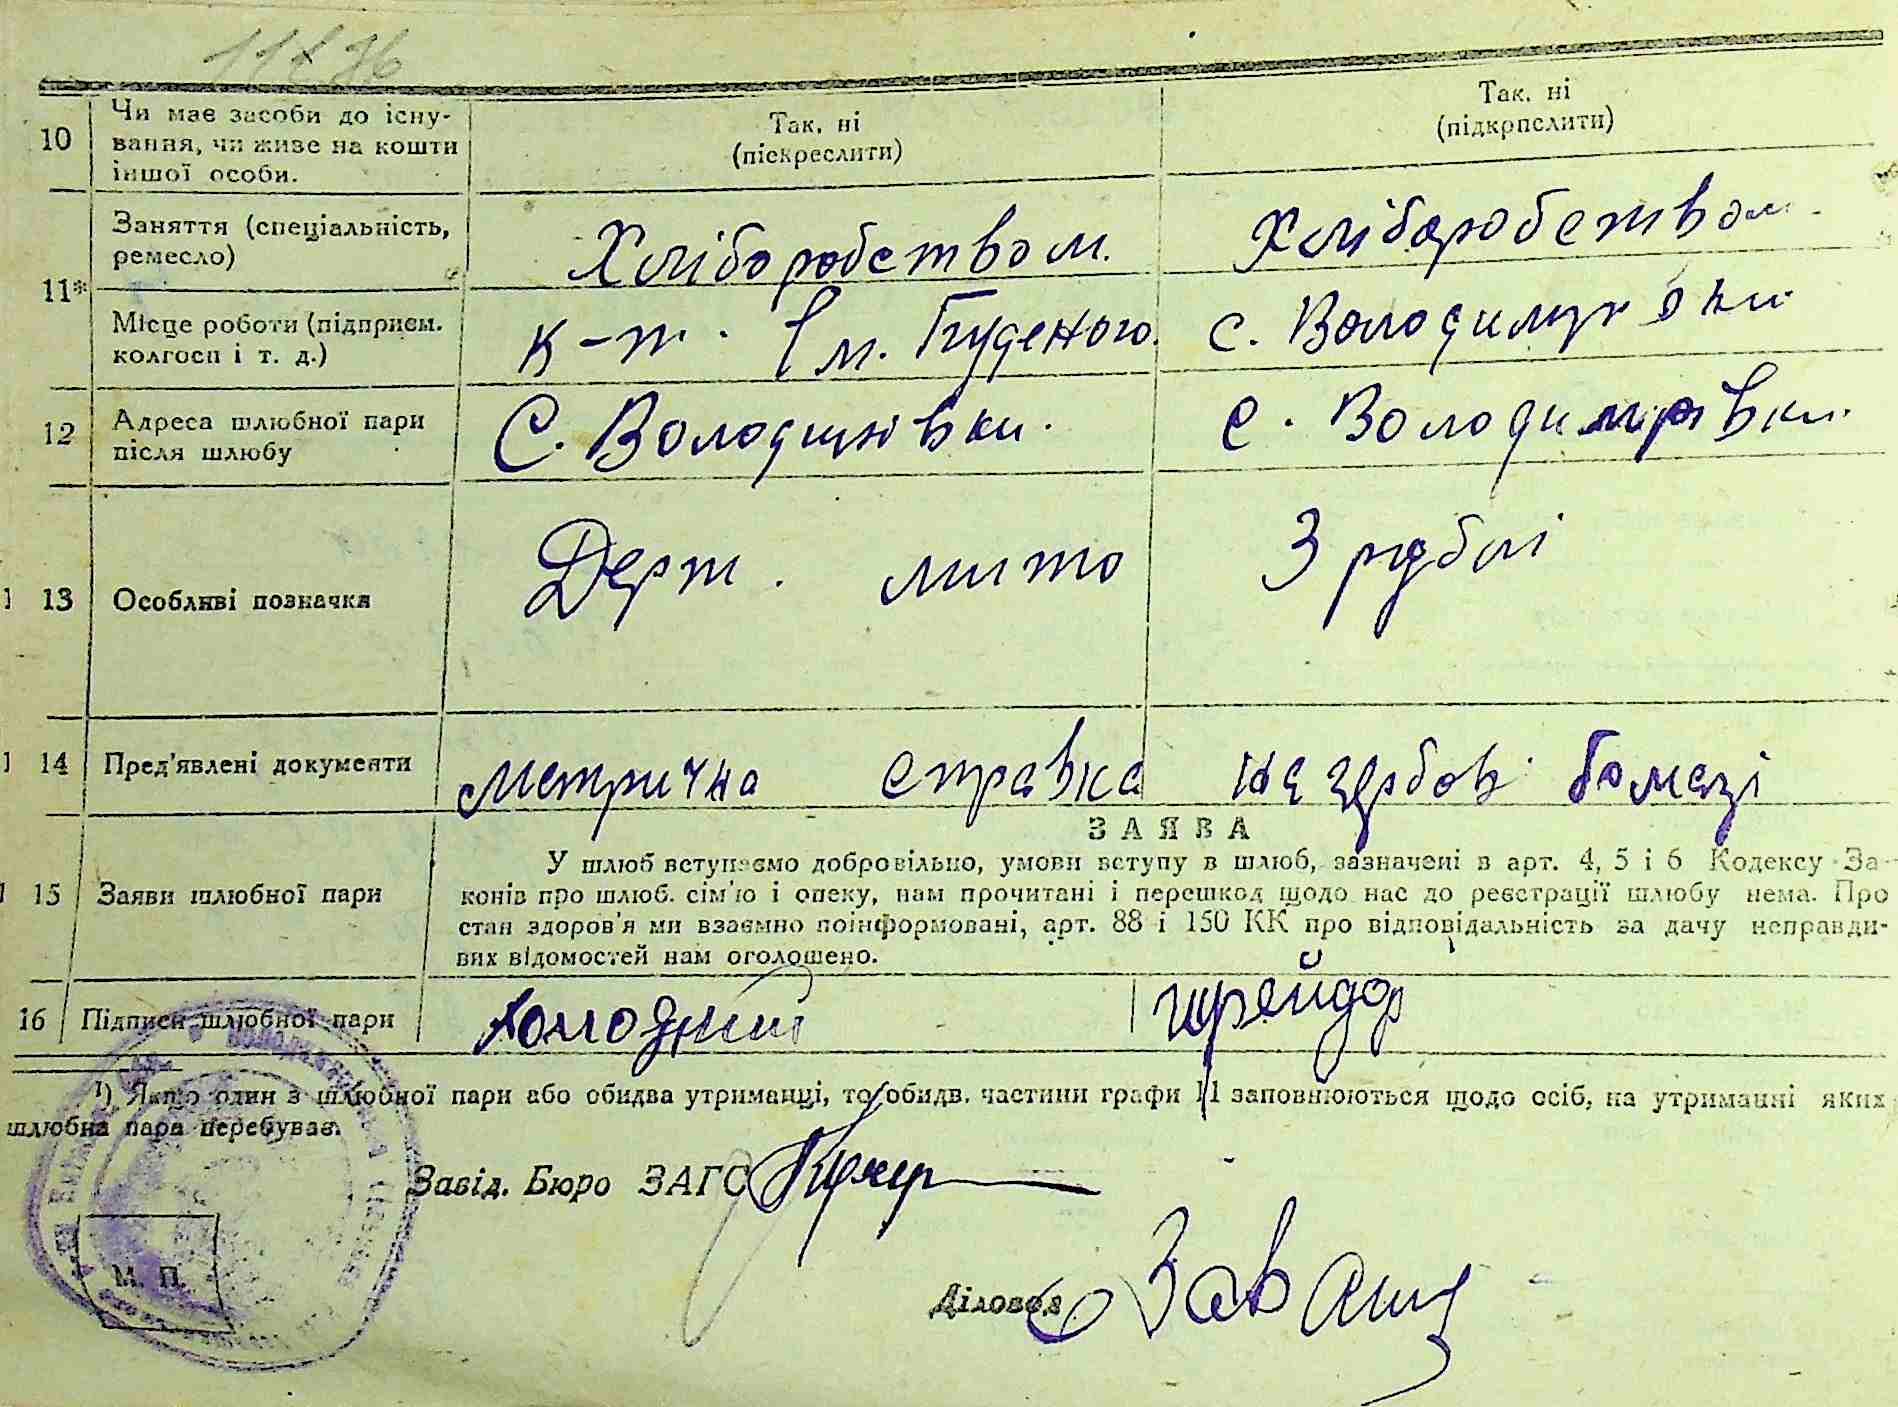 10
Чи має засоби до існу-
вання, чи живе на кошти
іншої особи.
Так, ні
(піскреслити)
Так. ні
(підкрпслити)
11*
Заняття (спеціальність,
ремесло)
Хліборобством.
Хліборобством.
Місце роботи (підприєм.
колгосп і т. д.)
к-т. Ім. Буденого.
с. Володимирівки
12
Адреса шлюбної пари
після шлюбу
С. Володимирівки.
с. Володимирівки.
13
Особливі позначки
Держ. мито
3 рублі
14
Пред'явлені документи
Метрична справка на гербові бомазі
15
Заяви шлюбної пари
ЗАЯВА
У шлюб вступаємо добровільно, умови вступу в шлюб, зазначені в арт. 4, 5 і 6 Кодексу За-
конів про шлюб. сім'ю і опеку, нам прочитані і перешкод щодо нас до реєстрації шлюбу нема. Про
стан здоров'я ми взаємно поінформовані, арт. 88 і 150 КК про відповідальність за дачу неправди-
вих відомостей нам оголошено.
16
Підписи шлюбної пари
Холодний
Шрейдор
1) Якщо один з шлюбної пари або обидва утриманці, то обидв. частини графи 11 заповнюються щодо осіб, на утриманні яких
шлюбна пара перебуває.
Завід. Бюро ЗАГС
Діловод
М. П.